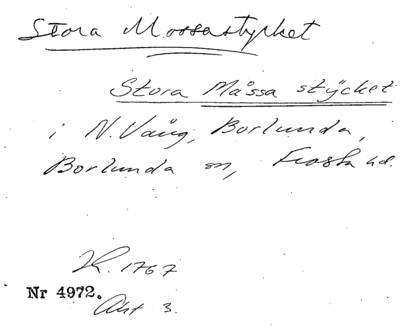 Stora Mossastyrket
Stora Måssa stÿcket
i N. Vång, Borlunda,
Borlunda sn, Frosta hd.
1767
Nr 4972.
Akt 3.